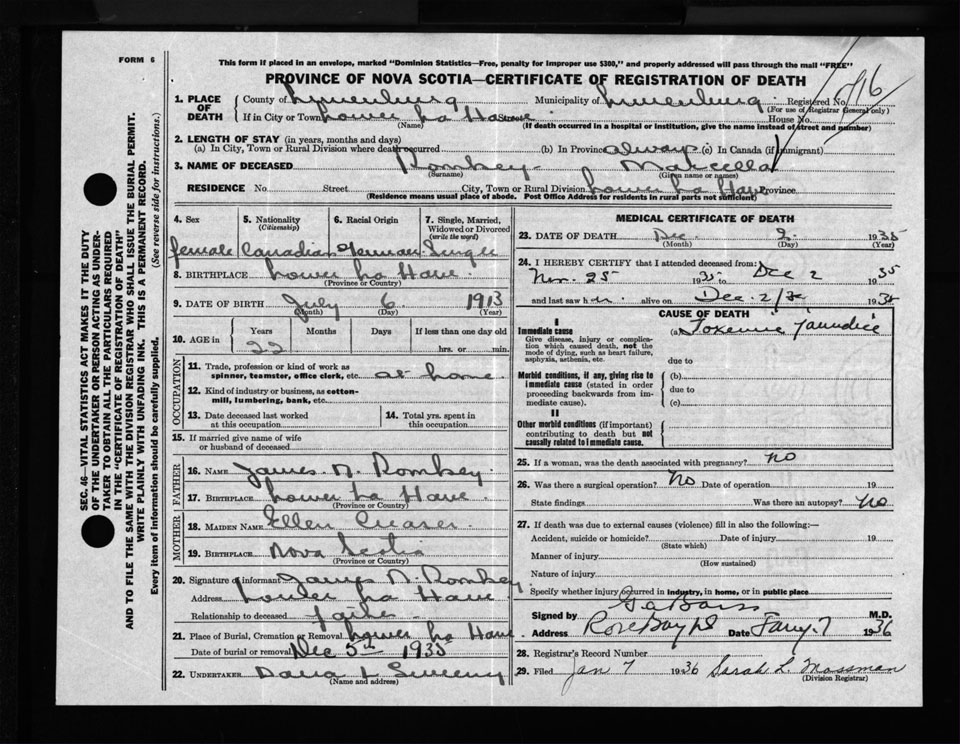 FORM 6
This form if placed in an envelope, marked "Dominion Statistics—Free, penalty for improper use $300," and properly addressed will pass through the mail "FREE"
PROVINCE OF NOVA SCOTIA—CERTIFICATE OF REGISTRATION OF DEATH
1. PLACE OF DEATH
County of Lunenburg Municipality of Lunenburg Registered No.
(For use of Registrar General only)
If in City or Town Lower La Have Street House No.
(Name) (If death occurred in a hospital or institution, give the name instead of street and number)
2. LENGTH OF STAY (in years, months and days)
(a) In City, Town or Rural Division where death occurred (b) In Province always (c) In Canada (if immigrant)
3. NAME OF DECEASED Romkey Marcella
(Surname) (Given name or names)
RESIDENCE No. Street City, Town or Rural Division Lower La Have Province
(Residence means usual place of abode. Post Office Address for residents in rural parts not sufficient)
SEC. 46—VITAL STATISTICS ACT MAKES IT THE DUTY
OF THE UNDERTAKER OR PERSON ACTING AS UNDER-
TAKER TO OBTAIN ALL THE PARTICULARS REQUIRED
IN THE "CERTIFICATE OF REGISTRATION OF DEATH"
AND TO FILE THE SAME WITH THE DIVISION REGISTRAR WHO SHALL ISSUE THE BURIAL PERMIT.
WRITE PLAINLY WITH UNFADING INK. THIS IS A PERMANENT RECORD.
Every item of information should be carefully supplied. (See reverse side for instructions.)
4. Sex 5. Nationality (Citizenship) 6. Racial Origin 7. Single, Married, Widowed or Divorced (write the word)
female Canadian German Single
8. BIRTHPLACE Lower La Have
(Province or Country)
9. DATE OF BIRTH July 6 1913
(Month) (Day) (Year)
10. AGE in Years Months Days If less than one day old
22 hrs. or min.
OCCUPATION
11. Trade, profession or kind of work as spinner, teamster, office clerk, etc. at home
12. Kind of industry or business, as cotton-mill, lumbering, bank, etc.
13. Date deceased last worked at this occupation
14. Total yrs. spent in this occupation
15. If married give name of wife or husband of deceased
FATHER
16. NAME James N. Romkey
17. BIRTHPLACE Lower La Have
(Province or Country)
MOTHER
18. MAIDEN NAME Ellen Creaser
19. BIRTHPLACE Nova Scotia
(Province or Country)
20. Signature of informant James N. Romkey
Address Lower La Have
Relationship to deceased father
21. Place of Burial, Cremation or Removal Lower La Have
Date of burial or removal Dec 5th 1935
22. UNDERTAKER
(Name and address)
MEDICAL CERTIFICATE OF DEATH
23. DATE OF DEATH Dec 2 1935
(Month) (Day) (Year)
24. I HEREBY CERTIFY that I attended deceased from:
Nov. 25 1935 Dec 2 1935
and last saw h alive on Dec. 2 193
CAUSE OF DEATH
I
Immediate cause (a) Toxemic jaundice
Give disease, injury or complication which caused death, not the mode of dying, such as heart failure, asphyxia, asthenia, etc.
due to
Morbid conditions, if any, giving rise to immediate cause (stated in order proceeding backwards from immediate cause). (b)
due to
(c)
II
Other morbid conditions (if important) contributing to death but not causally related to immediate cause.
25. If a woman, was the death associated with pregnancy? no
26. Was there a surgical operation? No Date of operation 19
State findings Was there an autopsy? No
27. If death was due to external causes (violence) fill in also the following:—
Accident, suicide or homicide? Date of injury 19
(State which)
Manner of injury
(How sustained)
Nature of injury
Specify whether injury occurred in industry, in home, or in public place
Signed by M.D.
Address Rose Bay Date Jany. 7 1936
28. Registrar's Record Number
29. Filed Jan 7 1936 Sarah L. Mossman
(Division Registrar)